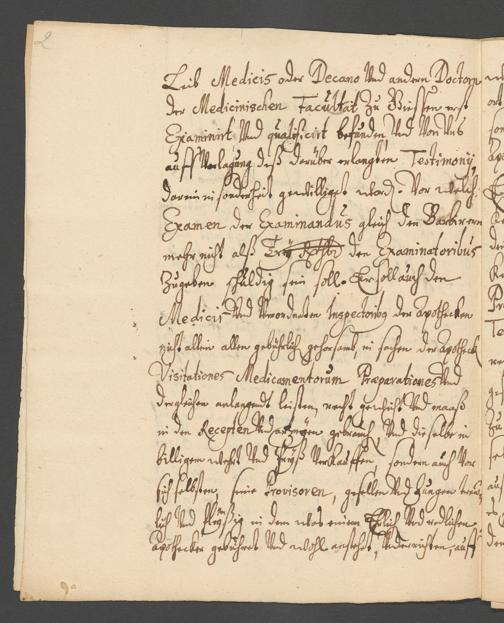 2
Leib Medicis oder Decano Und andern Doctorn
der Medicinischen Facultät zu Giessen erst
Examinirt Und qualificirt befunden Und Von Uns
auff Vorlagung deß darüber erlangten Testimonij,
darein in sonderheit gewilliget word. Vor welch
Examen der Examinandus gleich den Barbierern
mehr nicht alß den Examinatoribus
Zugeben schuldig sein soll. Er soll auch den
Medicis Und Verordneten Inspectoribus der Apothecken
nicht allein allen gebührlich gehorsamb, in sachen der Apotheck
Visitationes Medicamentorum Præparationes Und
dergleichen anlangendt leisten, recht gewicht Und maaß
in den Recepten Und gebrauch, Und dieselbe in
billigem wehrt Und Verkauffen, sondern auch Vor
sich selbsten, seine Provisoren, gesellen Und Jungen treu-
lich Und fleyßig in dem was einem Ehrlich Und redlichen
Apothecker gebühret Und wohl anstehet, Underrichten, auff